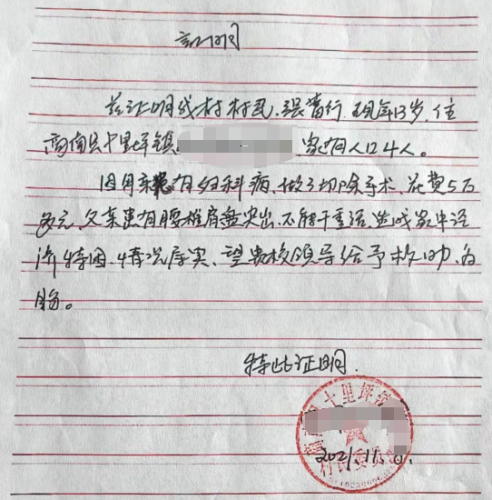 证明
兹证明我村村民、张富行、现年13岁、住
商南县十里坪镇 家有人口4人。
因母亲患有妇科病、做了切除手术、花费5万
多元、父亲患有腰椎肩盘突出、不能干重活、造成家中经
济特困、情况属实、望贵校领导给予救助、为
盼。
特此证明
十里坪
村民委员会
2021.11.